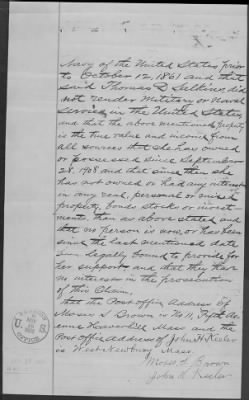 Navy of the United States prior
to October 12, 1861 and that
said Thomas D. Selkins did
not render Military or Naval
service in the United States,
and that the above mentioned
is the true value and income from
all sources that she has owned
or possessed since September
28, 1908 and that since then she
has not owned or had any interest
in any real, personal or mixed
property, bonds stocks or invest
ments, than as above stated and
that no person is now, or has been
since the last mentioned date
been legally bound to provide for
her support and that they have
no interest in the prosecution
of this Claim.
That the Post office Address of
Moses S. Brown is No 11, Fifth Av-
enue Haverhill Mass and the
Post office address of John H. Keeler
is West Newbury Mass.
Moses S. Brown
John H. Keeler
U. S.